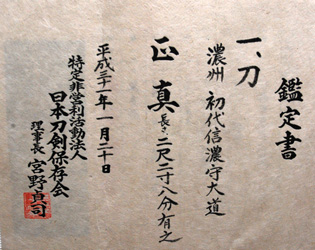 鑑定書
一、刀
濃州 初代信濃守大道
正真 長さ二尺二寸八分有之
平成三十一年一月二十日
特定非営利活動法人
日本刀剣保存会
理事長 宮野貞司